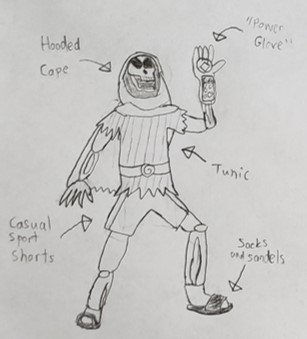 Hooded
Cape
"Power
Glove"
Tunic
Casual
Sport
Shorts
Socks
and sandels